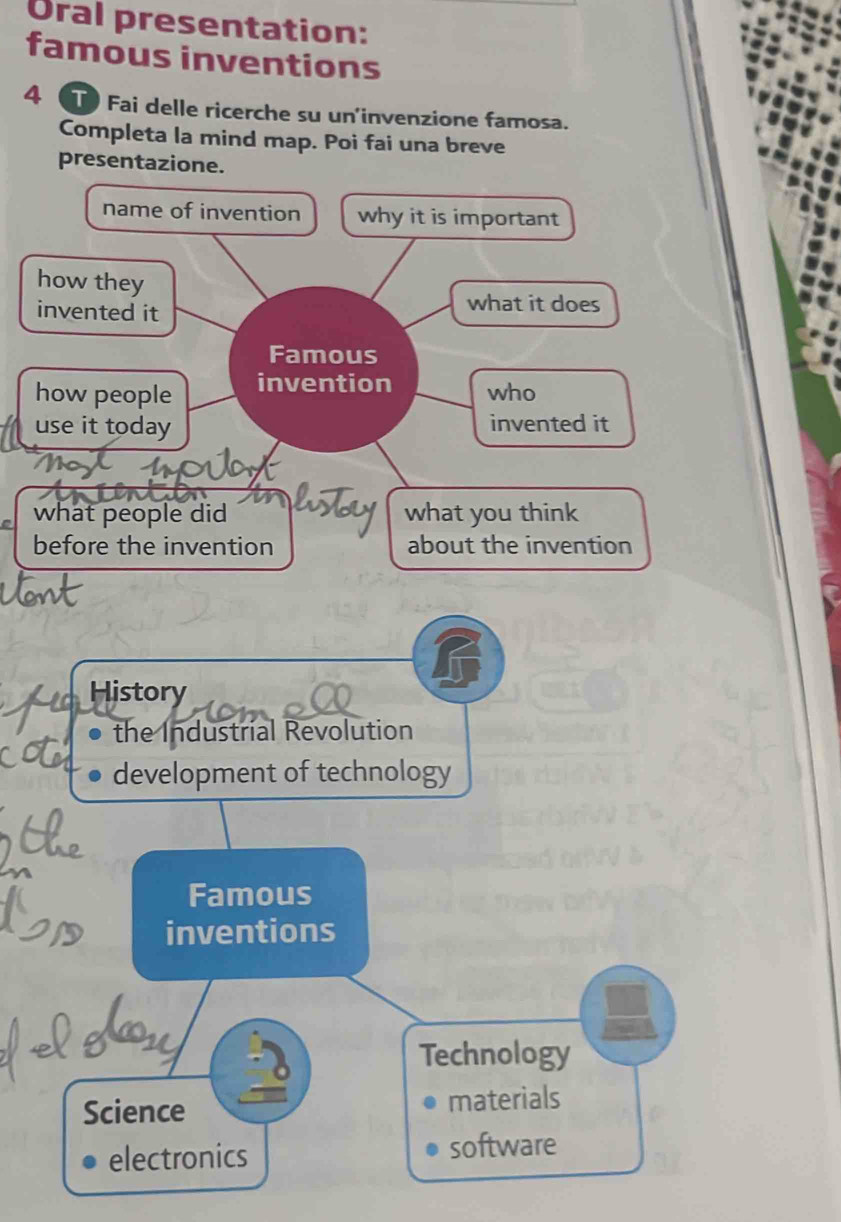 Oral presentation:
famous inventions
4 T Fai delle ricerche su un'invenzione famosa.
Completa la mind map. Poi fai una breve
presentazione.
name of invention
why it is important
how they
invented it
what it does
Famous
invention
how people
use it today
who
invented it
most
in history
what people did
before the invention
what you think
about the invention
History
from all
• the Industrial Revolution
• development of technology
the
in
Famous
inventions
Technology
• materials
• software
Science
• electronics